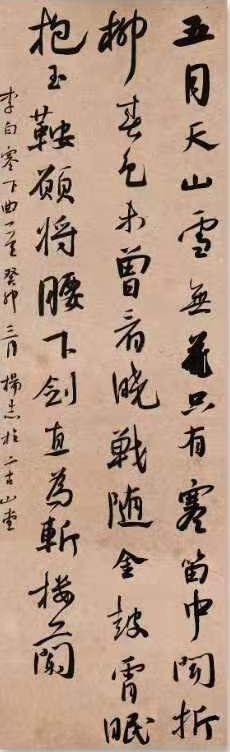 五月天山雪無花只有寒笛中聞折
柳春色未曾看曉戰隨金鼓宵眠
抱玉鞍願將腰下劍直為斬樓闌
李白塞下曲一首癸卯三月楊志於二古山堂